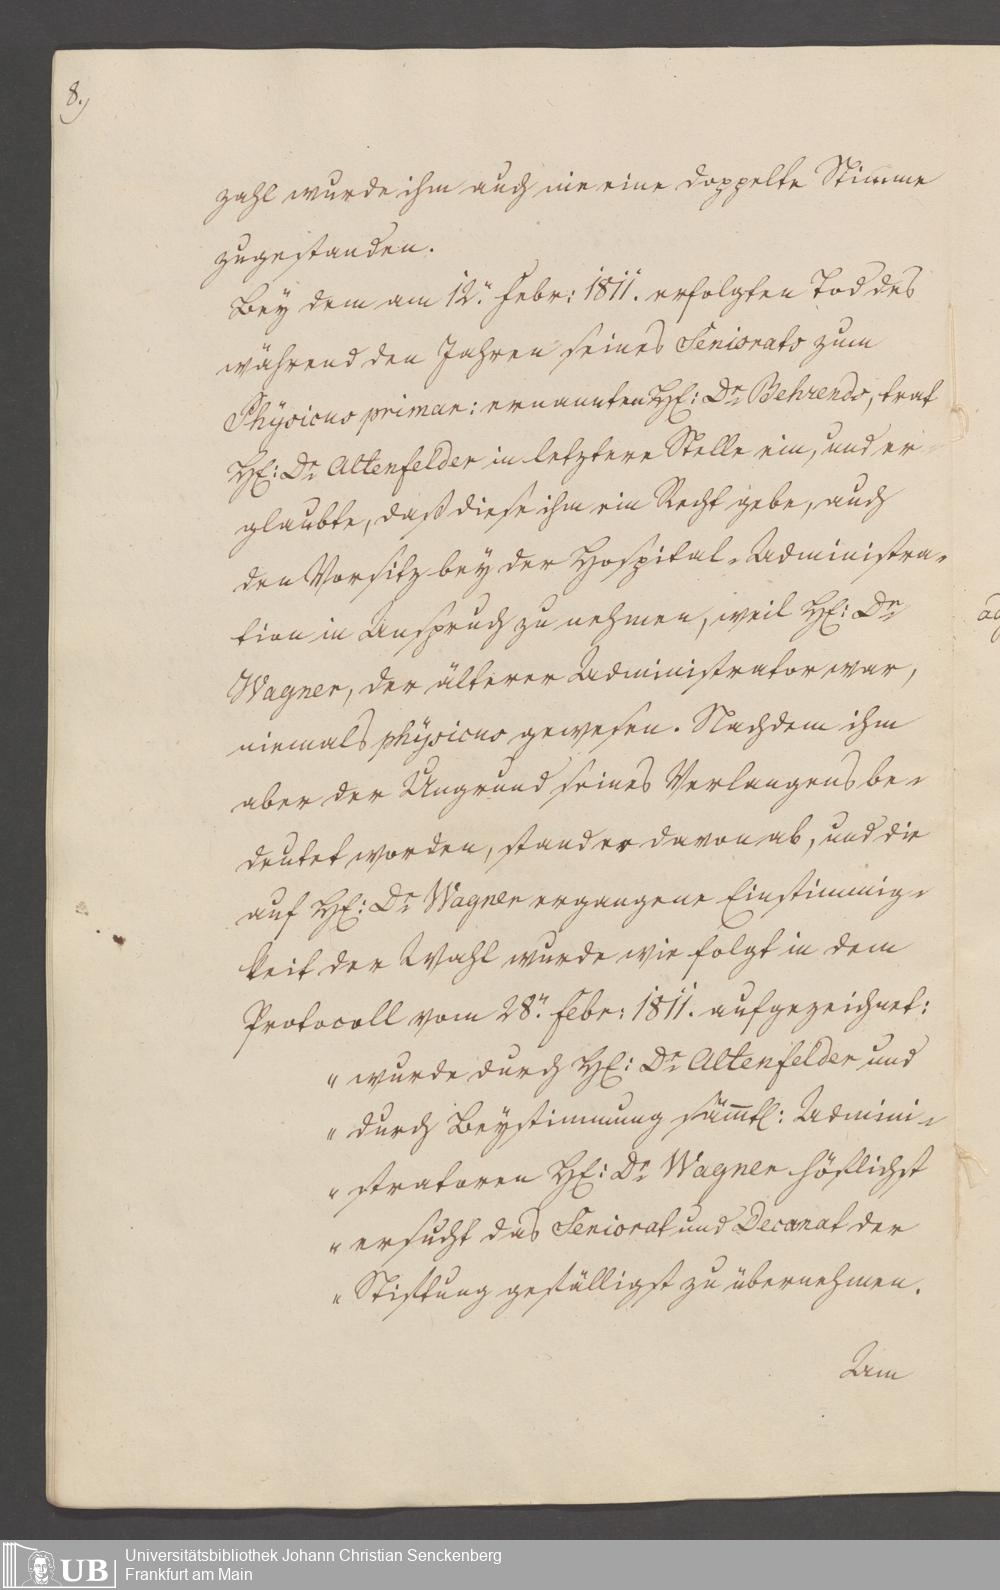 8.)
zahl wurde ihm auch nie eine doppelte Stimme
zugestanden.
Bey dem am 12.n Febr: 1811. erfolgten Tod des
während den Jahren seines Seniorats zum
Physicus primar: ernannten H: Dr Behrends, trat
H: Dr Altenfelder in letztere Stelle ein, und er
glaubte, daß diese ihm ein Recht gebe, auch
den Vorsitz bey der Hospital-Administra-
tion in Anspruch zu nehmen, weil H: Dr
Wagner, der älterer Administrator war,
niemals physicus gewesen. Nachdem ihm
aber der Ungrund seines Verlangens be-
deutet worden, stand er davon ab, und die
auf H: Dr Wagner ergangene Einstimmig-
keit der Wahl wurde wie folgt in dem
Protocoll vom 28.n Febr: 1811. aufgezeichnet:
" wurde durch H: Dr Altenfelder und
" durch Beystimmung sämtl: Admini-
" stratoren H: Dr Wagner höflichst
" ersucht das Seniorat und Decanat der
" Stiftung gefälligst zu übernehmen.
Am
UB
Universitätsbibliothek Johann Christian Senckenberg
Frankfurt am Main